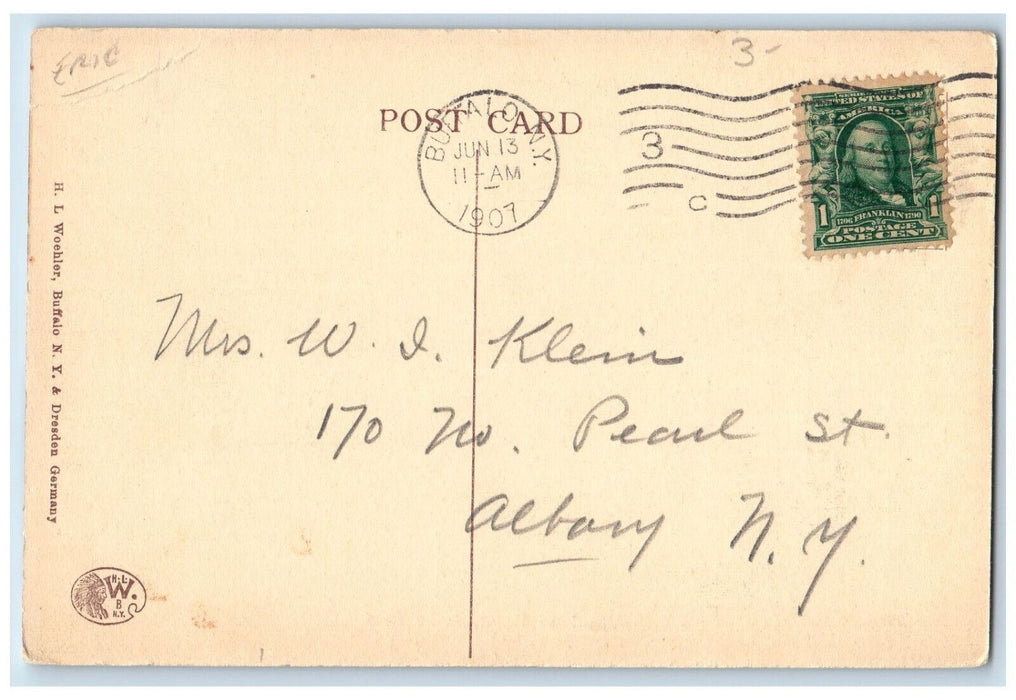 ERIE
3-
POST CARD
BUFFALO, N.Y.
JUN 13
11-AM
1907
3
C
SERIES
UNITED STATES OF
AMERICA
1 1
1706 FRANKLIN 1790
POSTAGE
ONE CENT
H. L. Woehler, Buffalo N. Y. & Dresden Germany
Mrs. W. I. Klein
170 No. Pearl St.
Albany N. Y.
H.L.
W.
B
N.Y.